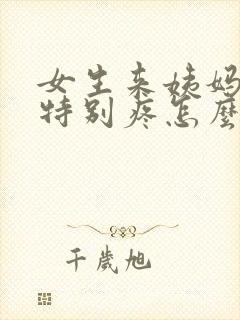 女生来姨妈
特别疼怎麼
千歲旭